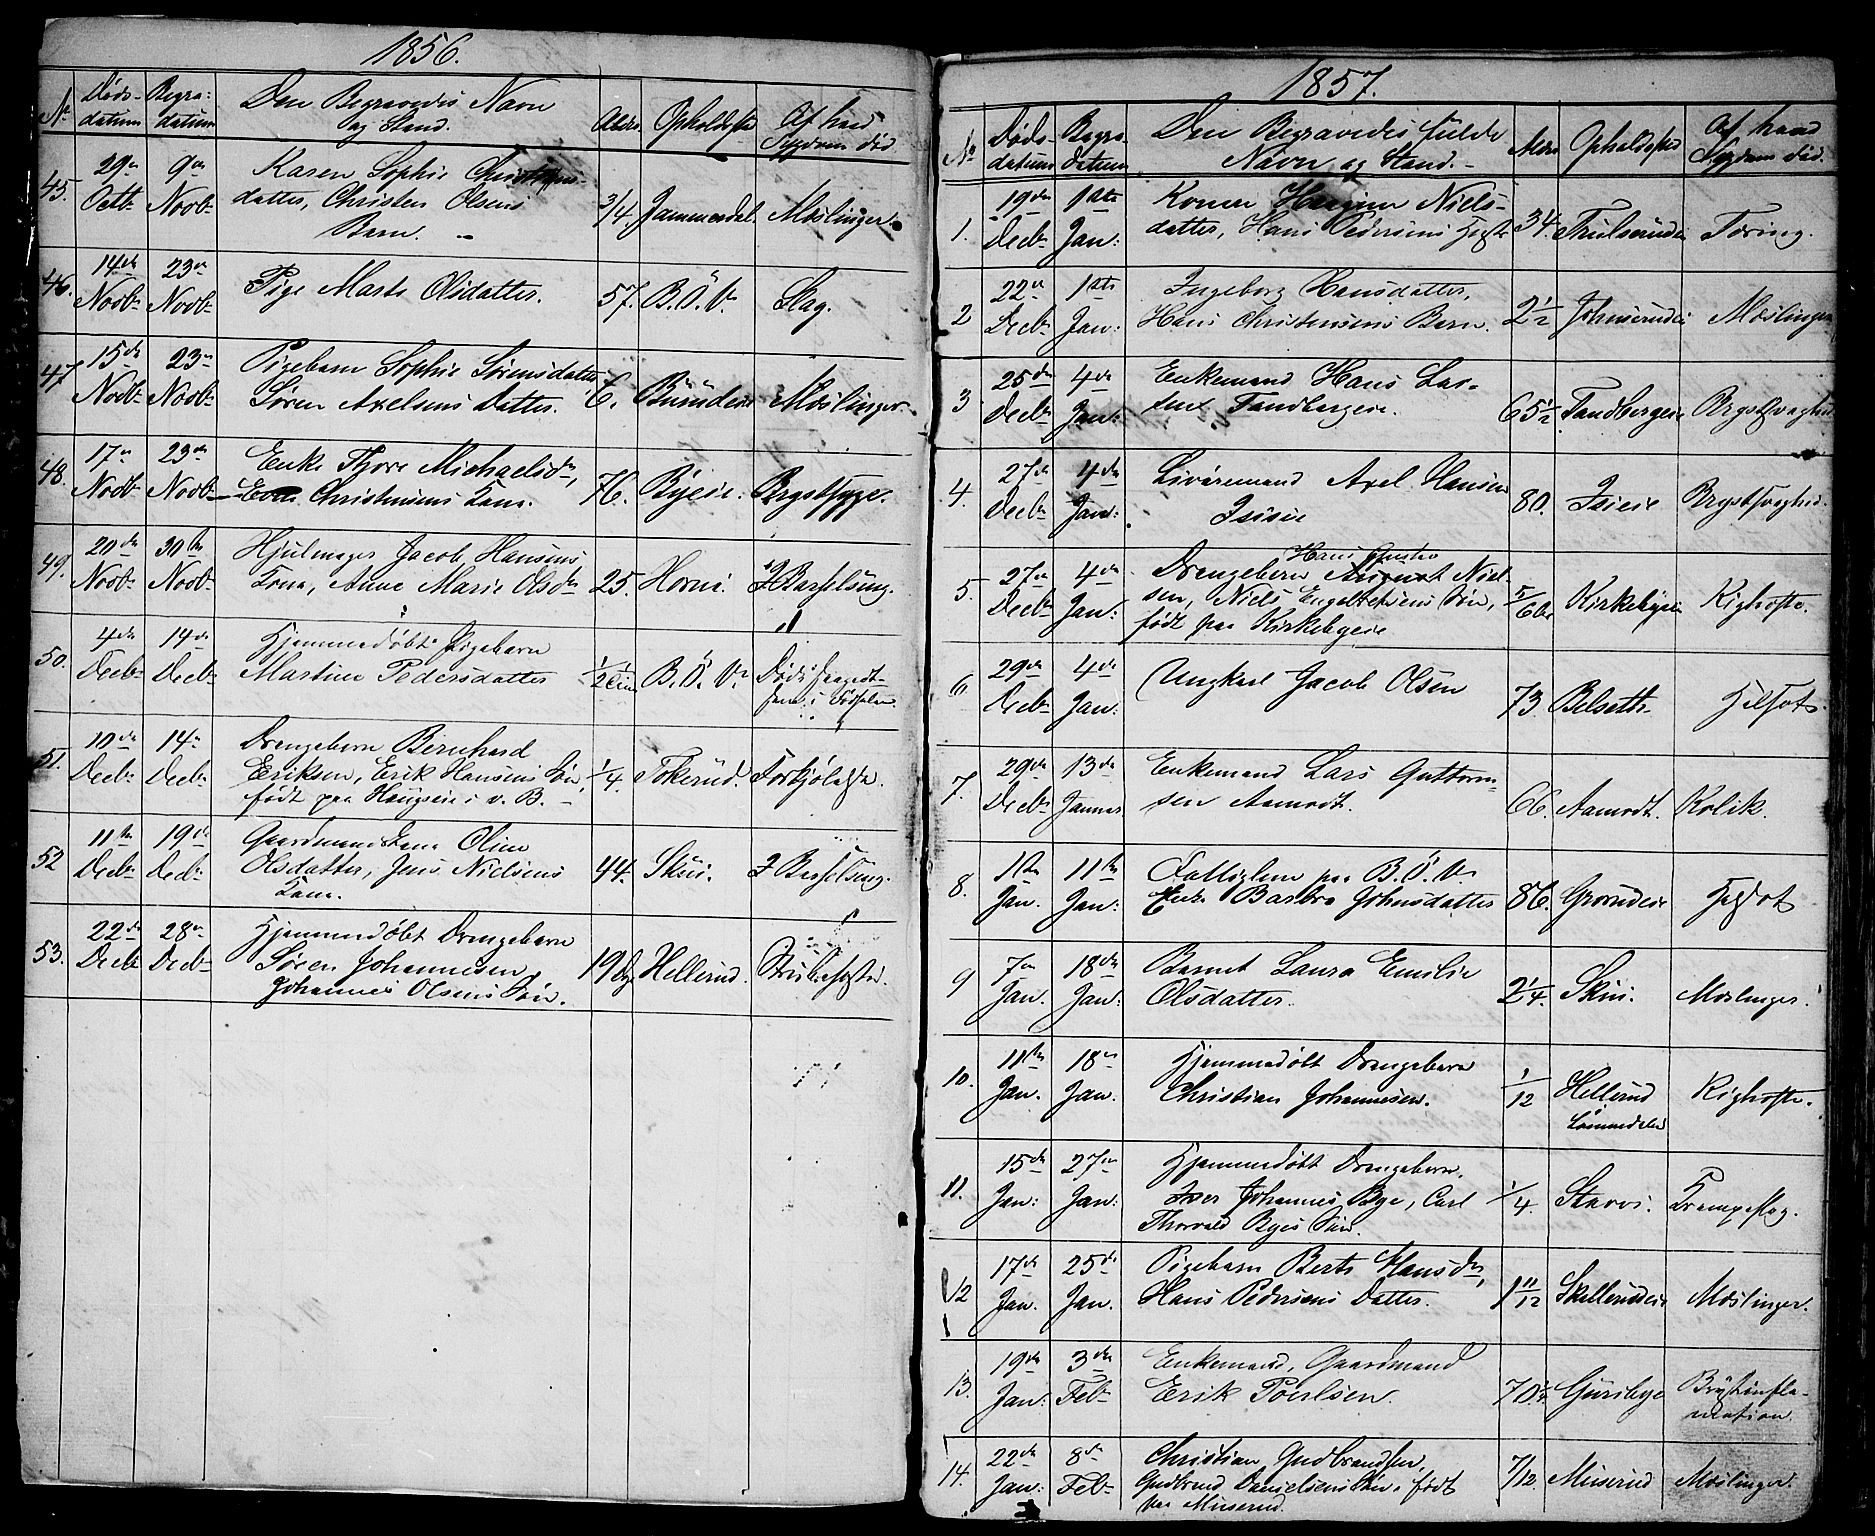 1856.
No Døds- datum Begra: datum Den Begravedes Navn og Stand. Alder Opholdssted Af hvad Sygdom død
45. 29de Octbr 9de Novbr Karen Sophie Christens-
datter, Christen Olsens
Barn. 3/4. Jammerdal Mæslinger.
46. 14de Novbr 23de Novbr Pige Marte Olsdatter. 57. B.Ö.V. Slag.
47 15de Novbr 23de Novbr Pigebarn Sophie Sörensdatter
Sören Axelsens Datter. 6. Mæslinger.
48. 17de Novbr 23de Novbr Enke Thore Michaelsdr,
Christensens Kone. 76. Byeie. Brystsyge.
49. 20de Novbr 30te Novbr Hjulmager Jacob Hansens
Kone, Anne Marie Olsdr 25. Horni. I Barselseng.
50. 4de Decbr 14de Decbr Hjemmedøbt Pigebarn
Martine Pedersdatter 1/2 B.Ö.V.
51. 10de Decbr 14de Decbr Drengebarn Bernhard
Eriksen, Erik Hansens Søn,
født paa Haugseie i v. B. 1/4. Tokerud. Forkjølelse.
52 11te Decbr 19de Decbr Gaardmandskone Oline
Olsdatter, Jens Nielsens
Kone. 44. Skui. I Barselseng.
53. 22de Decbr 28de Decbr Hjemmedøbt Drengebarn
Søren Johannesen,
Johannes Olsens Søn. 19 Dg. Hellerud. Strubehoste.
1857.
No Døds- datum Begra- datum Den Begravedes fulde Navn og Stand. Alder Opholdssted Af hvad Sygdom død.
1. 19de Decbr 1ste Jan: Konen Niels-
datter, Hans Pedersens 34. Tæring.
2 22de Decbr 1ste Jan: Ingeborg Hansdatter,
Hans Christensens Barn. 2 1/2 Johnsrudeie Mæslinger
3 25de Decbr 4de Jan: Enkemand Hans Lar-
sen Tandbergeie. 65 1/2 Tandbergeie Brystsvaghed
4. 27de Decbr 4de Jan: Livøremand Axel Hansen
Isieie 80. Isieie Brystsvaghed.
5. 27de Decbr 4de Jan: Hans Gustav
Drengebarn August Niel-
sen, Niels Engebretsens Søn,
født paa Kirkebyeie 5/6 Kirkebyeie Kighoste.
6 29de Decbr 4de Jan. Ungkarl Jacob Olsen 73. Belseth
7. 29de Decbr 13de Januar Enkemand Lars Guttorm-
sen Aamodt. 66. Aamodt. Kolik.
8. 1ste Jan. 11te Jan: Fattiglem paa B.Ö.V.
Enke Barbro Johnsdatter 86. Grorudeie
9 7de Jan. 18de Jan: Barnet Laura Emilie
Olsdatter. 2 1/4. Skui. Mæslinger.
10. 11te Jan. 18de Jan. Hjemmedøbt Drengebarn
Christian Johannesen. 1/12 Hellerud
Lommedalen Kighoste.
11. 15de Jan: 27de Jan: Hjemmedøbt Drengebarn,
Iver Johannes Bye, Carl
Thorvald Byes Søn. 1/4. Stavei. Krampeslag.
12 17de Jan. 25de Jan. Pigebarn Berte Hansdr,
Hans Pedersens Datter. 1 11/12 Skellerudeie Mæslinger.
13. 19de Jan: 3de Febr Enkemand, Gaardmand
Erik Poulsen. 70 Guriby Brystinfla-
mation.
14. 22de Jan: 8de Febr Christian Gudbrandsen,
Gudbrand Danielsens Søn, født
paa Muserud. 7/12. Muserud Mæslinger.